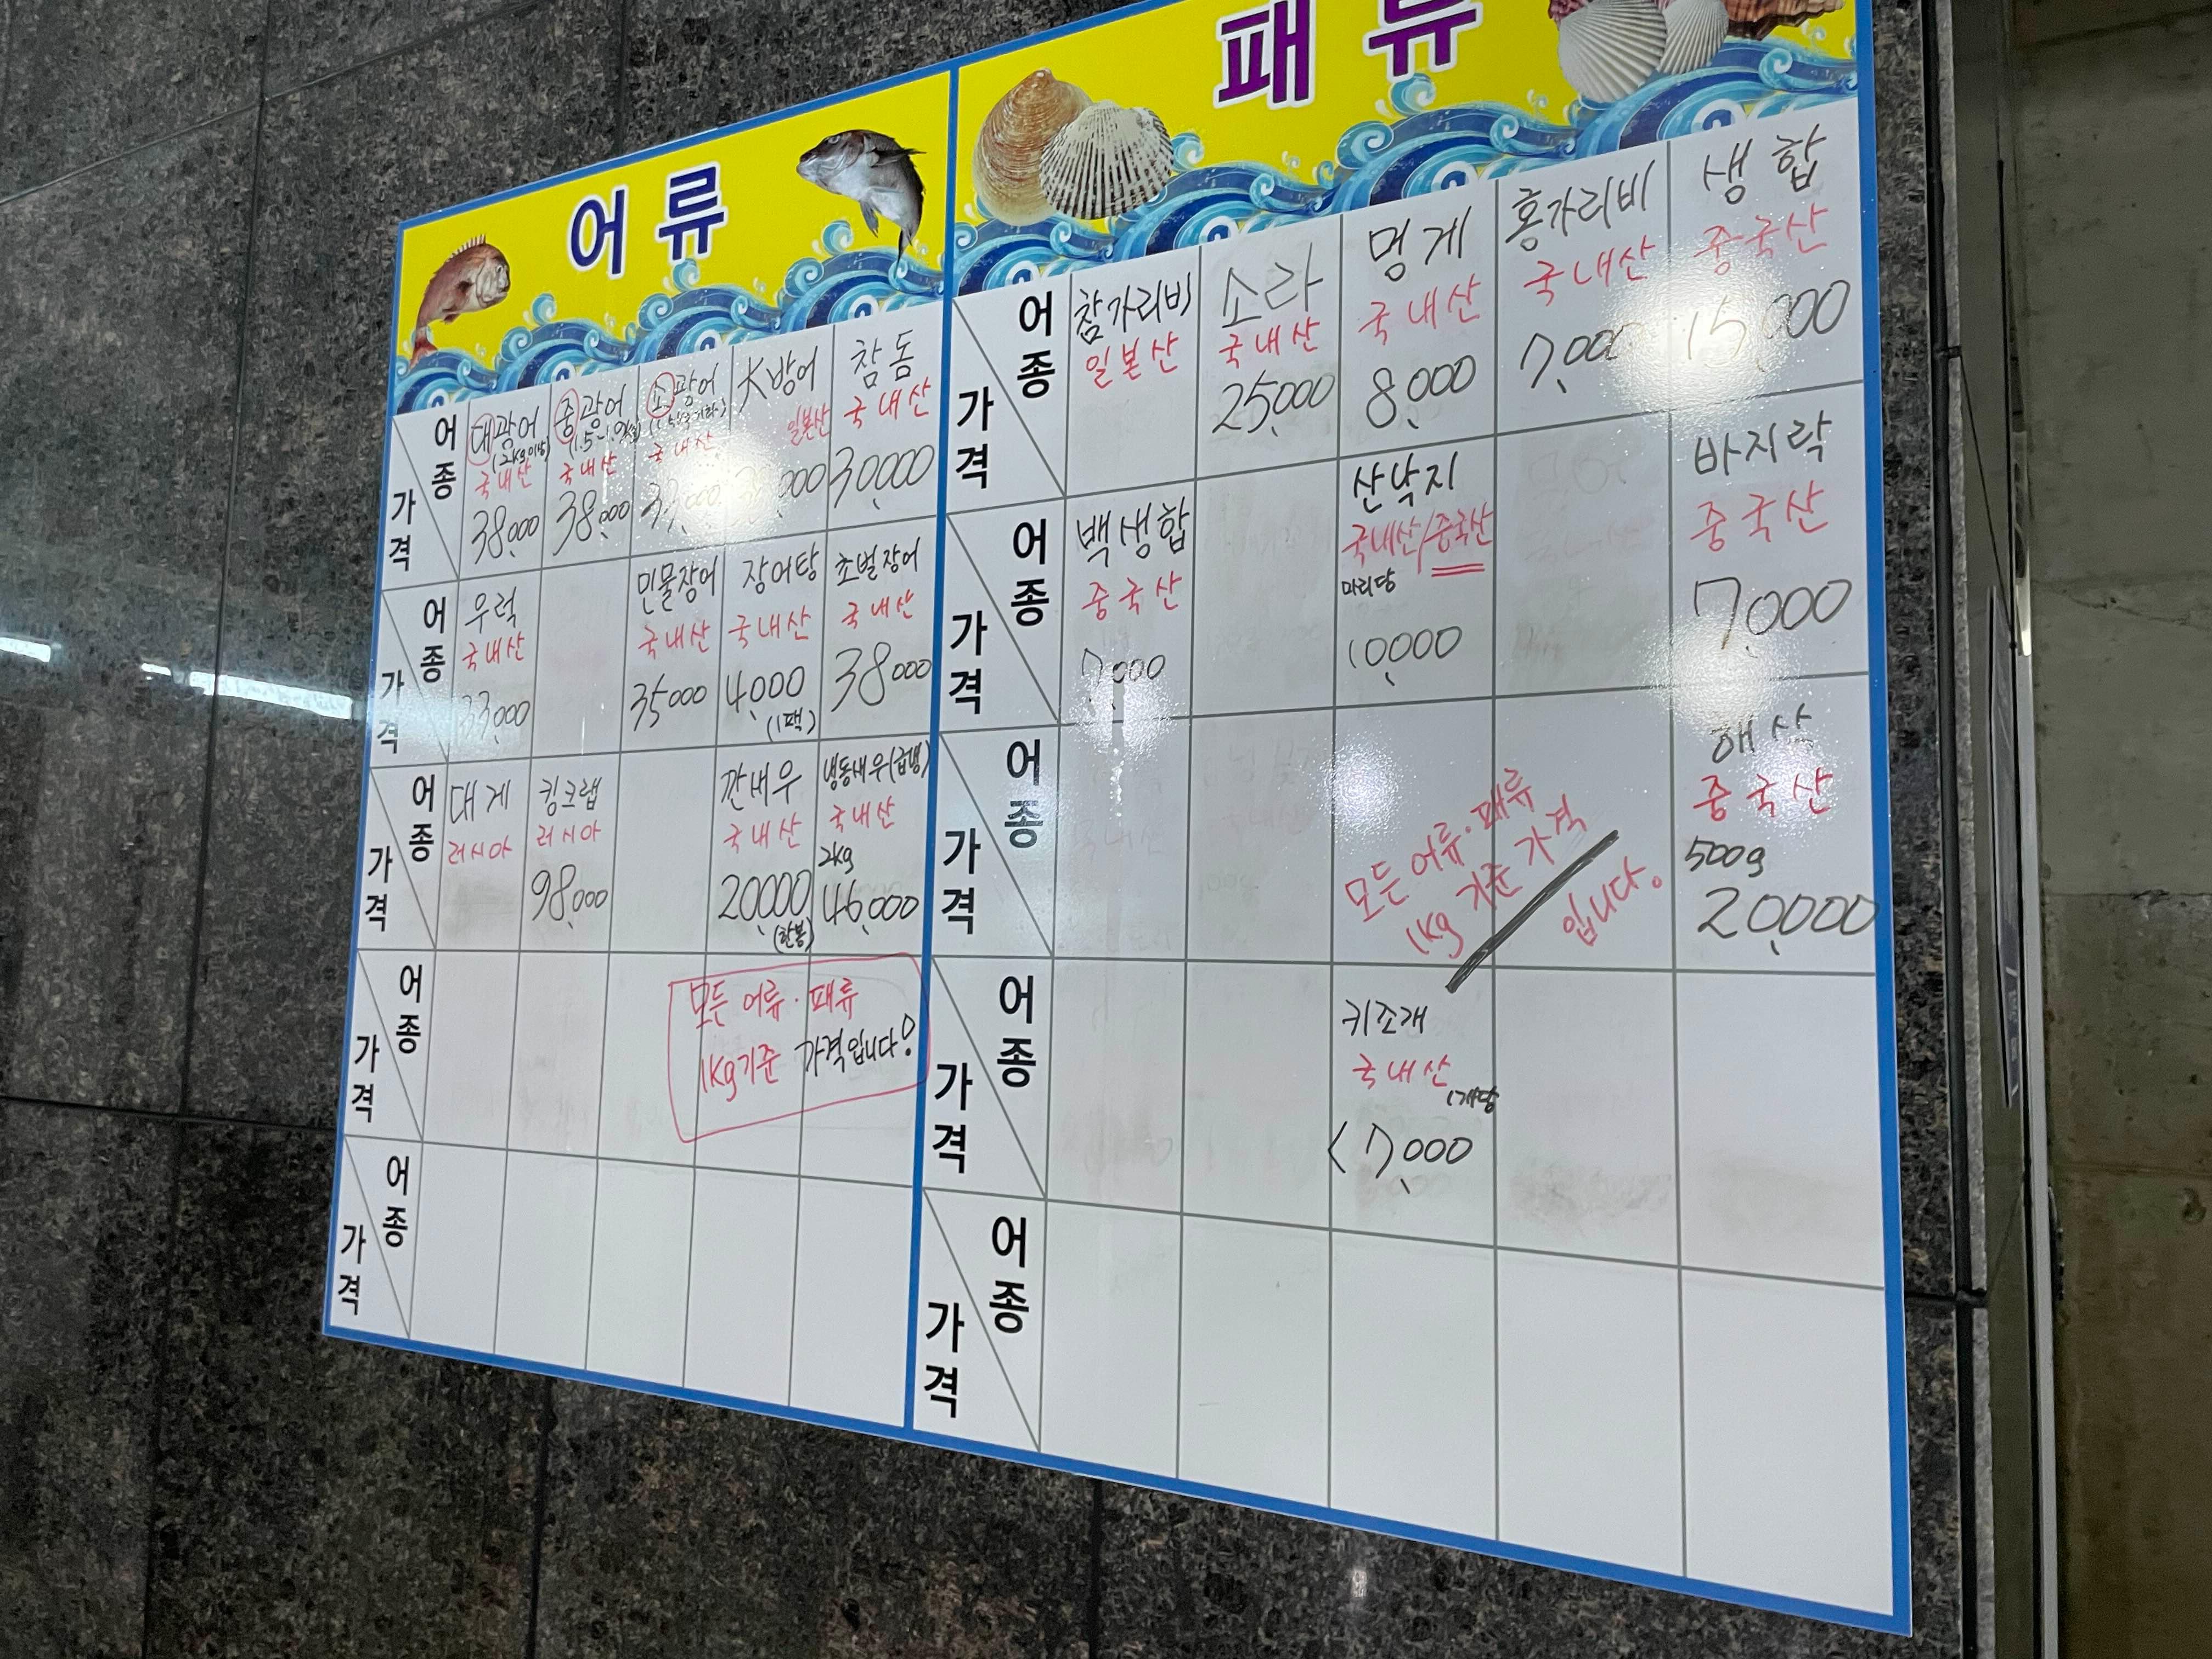 어류
대광어
(2kg이상)
국내산
38,000
중광어
국내산
38,000
소광어
국내산
33,000
大방어
일본산
참돔
국내산
30,000
어종
가격
우럭
국내산
33,000
민물장어
국내산
35000
장어탕
국내산
4,000
(1팩)
초벌장어
국내산
38000
어종
가격
대게
러시아
킹크랩
러시아
98,000
깐새우
국내산
20000
(한봉)
냉동새우(급냉)
국내산
2kg
46,000
어종
가격
모든 어류·패류
1kg기준 가격입니다!
어종
가격
어종
가격
패류
참가리비
일본산
소라
국내산
25,000
멍게
국내산
8,000
홍가리비
국내산
7,000
생합
중국산
15,000
어종
가격
백생합
중국산
7,000
산낙지
국내산/중국산
마리당
10,000
바지락
중국산
7,000
어종
가격
모든 어류·패류
1kg 기준 가격
입니다.
해삼
중국산
500g
20,000
어종
가격
키조개
국내산
1개당
7,000
어종
가격
어종
가격